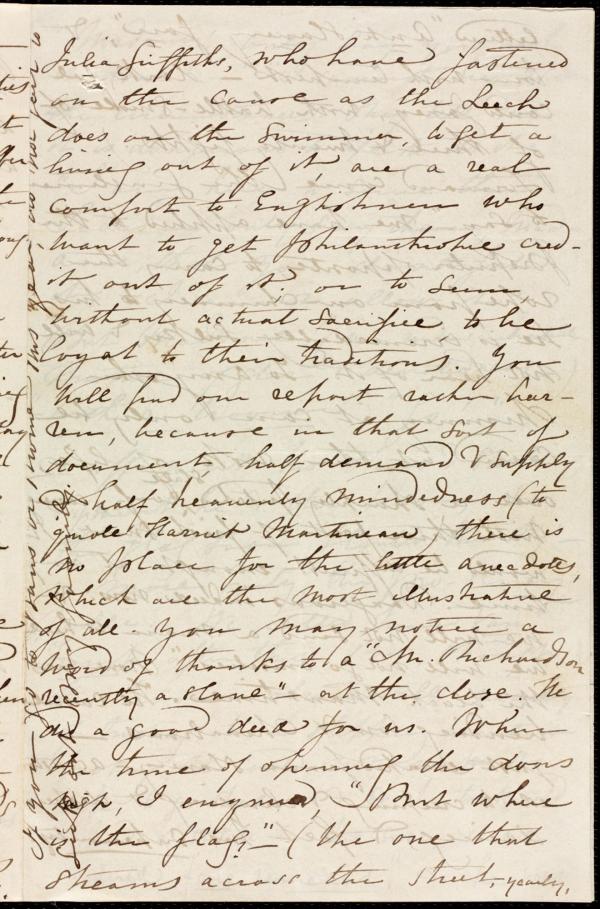 Julia Griffiths, who have fastened
on the cause as the Leech
does on the swimmer, to get a
living out of it, are a real
comfort to Englishmen who
want to get philanthropic cred-
it out of it, or to seem,
without actual sacrifice, to be
loyal to their traditions. You
will find our report rather bar-
ren, because in that sort of
document half demand & supply
& half heavenly mindedness (to
quote Harriet Martineau, there is
no place for the little anecdotes,
which are the most illustrative
of all. You may notice a
word of "thanks to a "Mr. Richardson
recently a slave" - at the close. He
did a good deed for us. When
the time of opening the doors
I enquired, "But where
is the flag?" - (the one that
streams across the street, yearly,
If you go to Paris or Rome this year, do not fail to